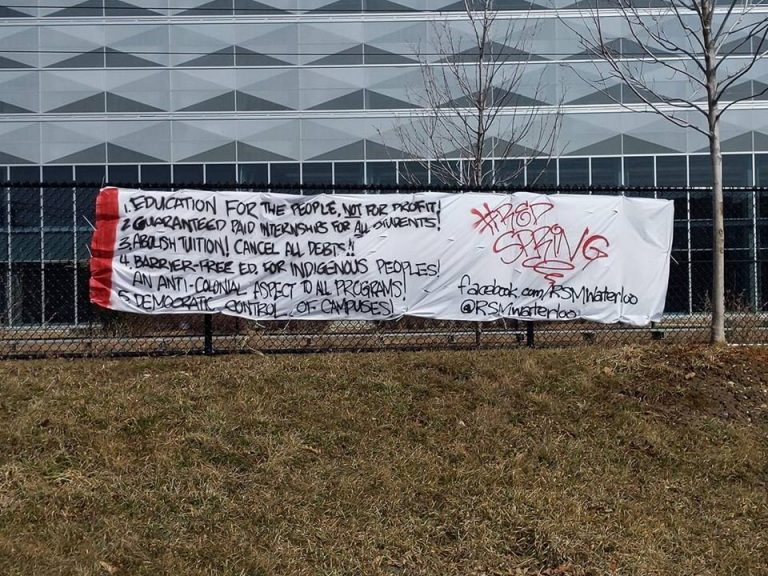 1. EDUCATION FOR THE PEOPLE, NOT FOR PROFIT!
2. GUARANTEED PAID INTERNSHIPS FOR ALL STUDENTS!
3. ABOLISH TUITION! CANCEL ALL DEBTS!!
4. BARRIER-FREE ED. FOR INDIGENOUS PEOPLES!
AN ANTI-COLONIAL ASPECT TO ALL PROGRAMS!
5. DEMOCRATIC CONTROL OF CAMPUSES!
#RED
SPRING
facebook.com/RSMWaterloo
@RSMWaterloo